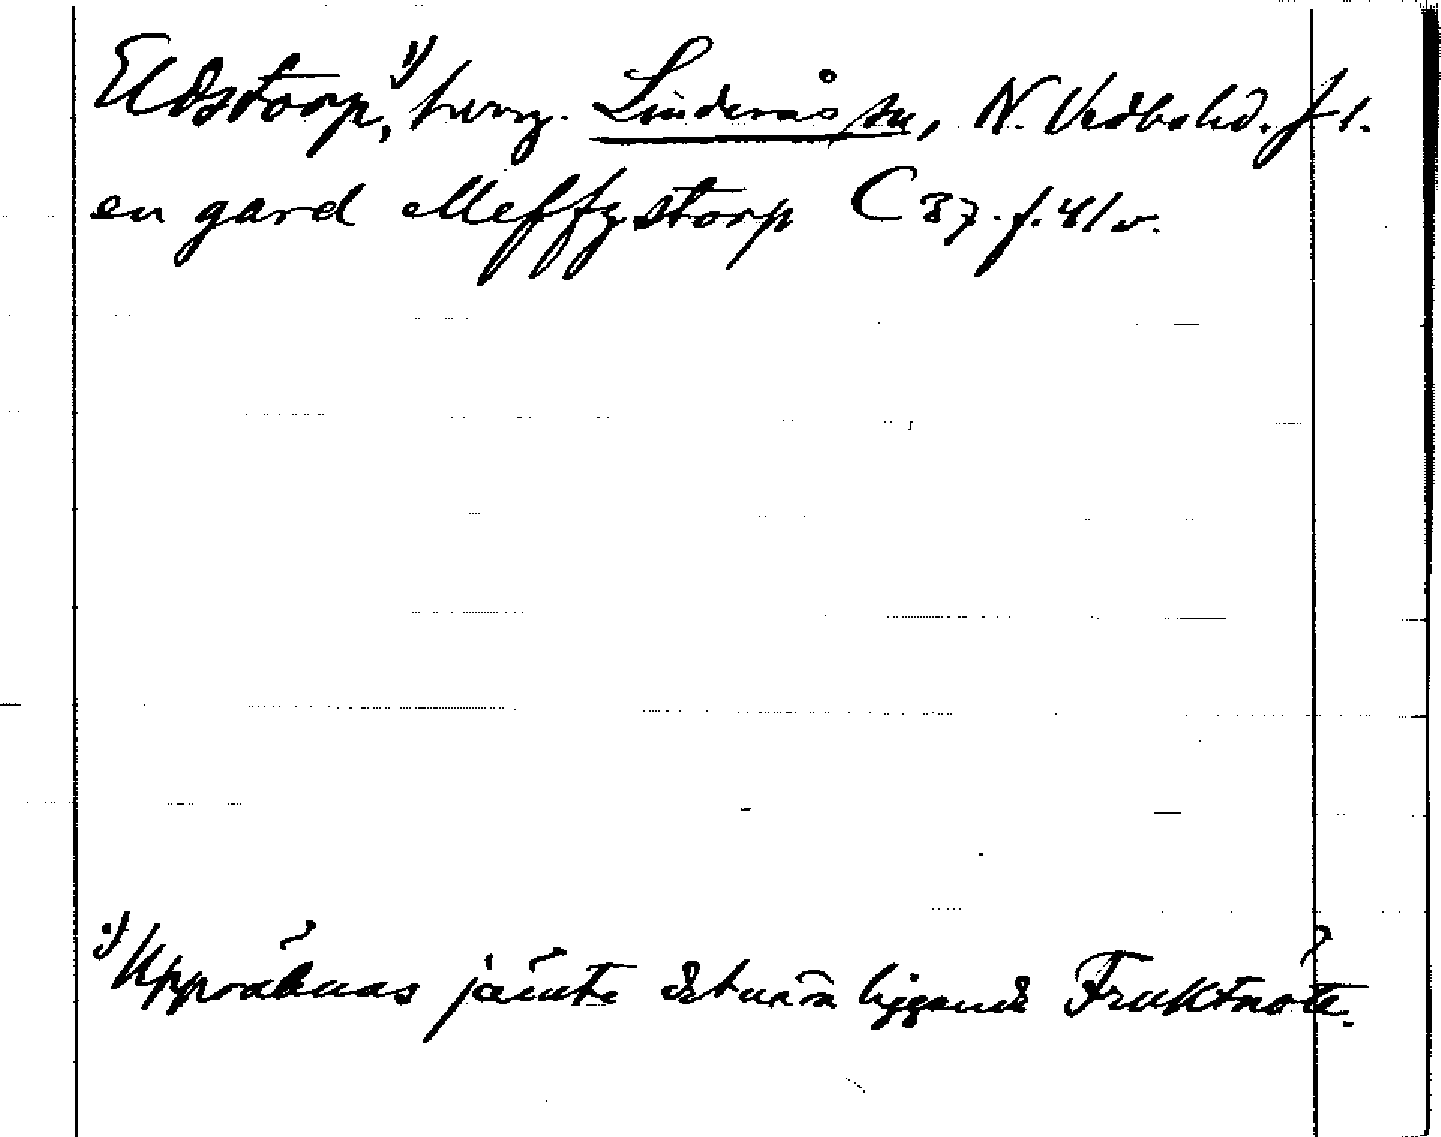 Eldstorp,¹⁾ hmg. Linderås sn, N. Vedbo hd. J. l.
en gard Meffgstorp C 37. f. 41 v.
¹⁾ Uppräknas jämte det nära liggande Fruktnöte.